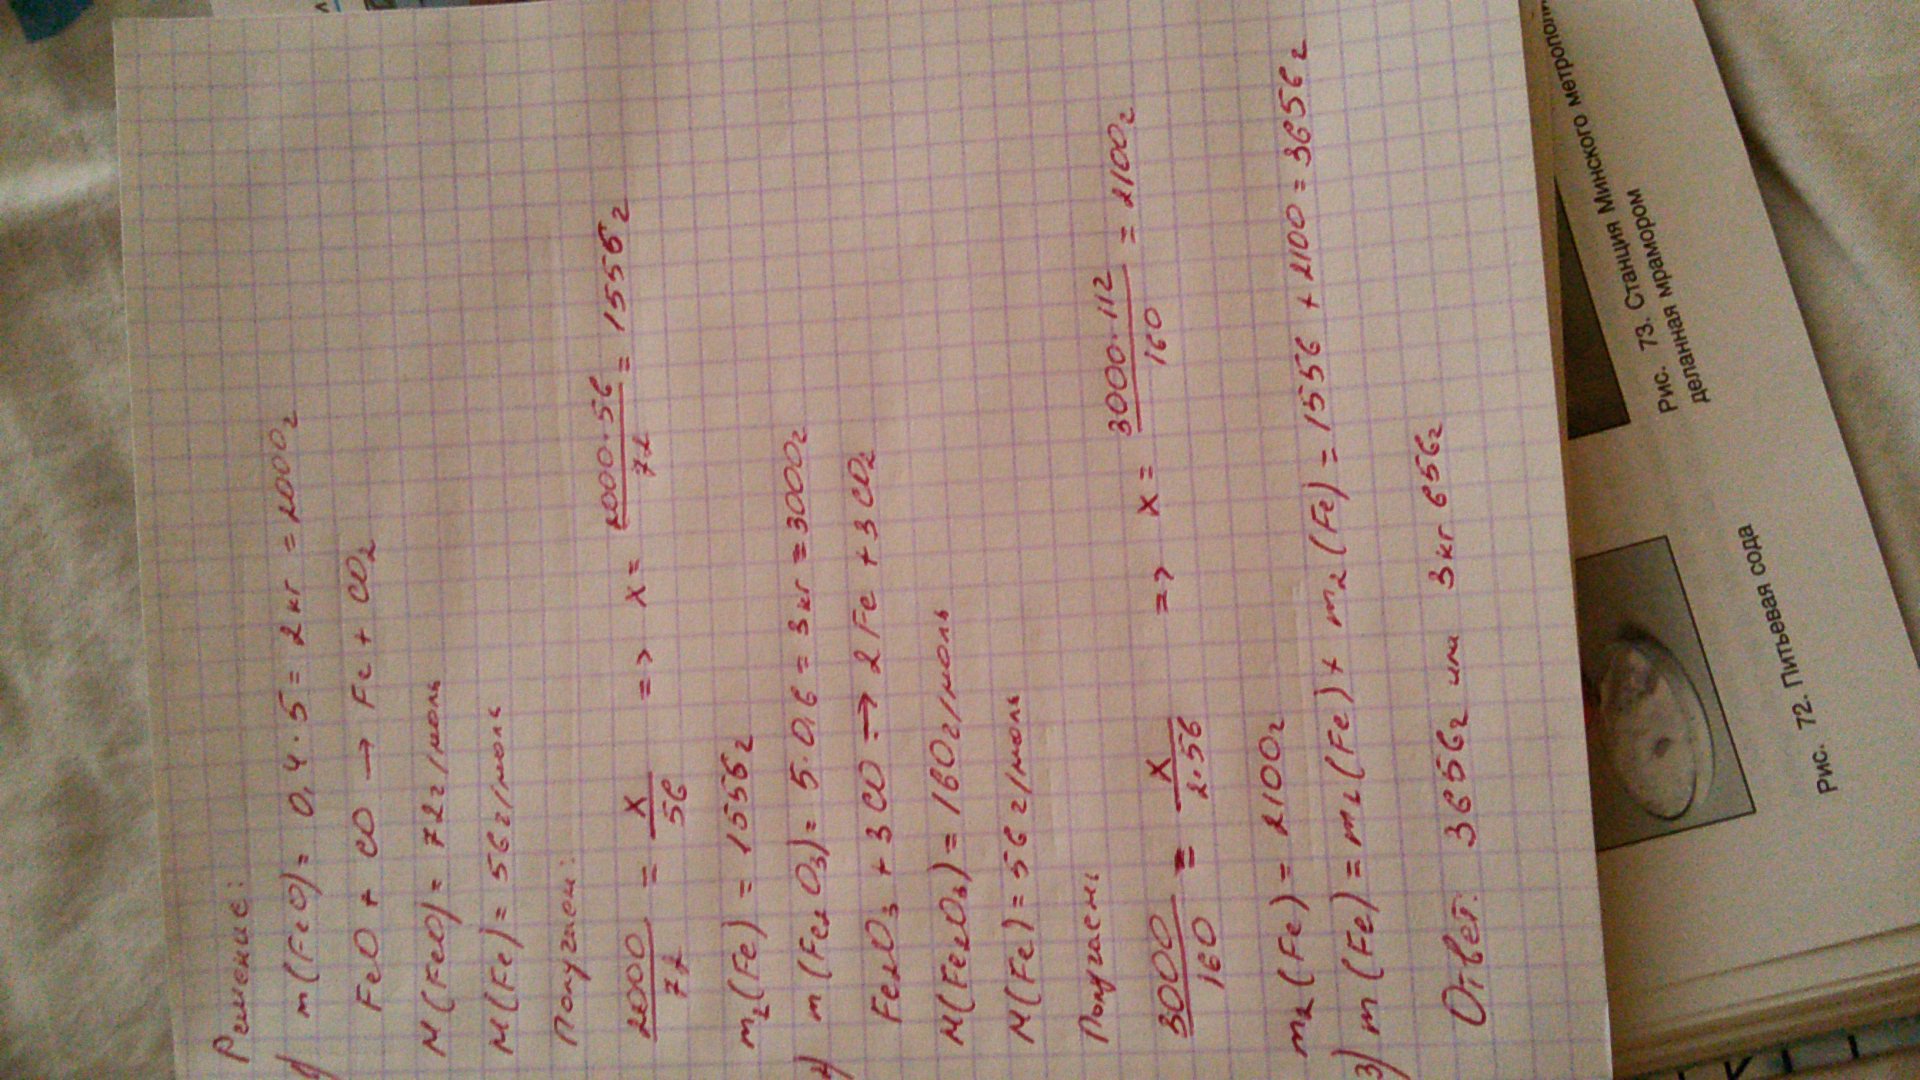 Решение:
1) m(FeO) = 0,4·5 = 2 кг = 2000г
FeO + CO → Fe + CO2
M(FeO) = 72 г/моль
M(Fe) = 56 г/моль
Получаем:
2000/72 = x/56 => x = 2000·56/72 = 1556 г
m2(Fe) = 1556 г
2) m(Fe2O3) = 5·0,6 = 3 кг = 3000г
Fe2O3 + 3CO → 2Fe + 3CO2
M(Fe2O3) = 160 г/моль
M(Fe) = 56 г/моль
Получаем:
3000/160 = x/2·56 => x = 3000·112/160 = 2100г
m2(Fe) = 2100г
3) m(Fe) = m2(Fe) + m2(Fe) = 1556 + 2100 = 3656 г
Ответ: 3656г или 3кг 656г
Рис. 72. Питьевая сода
Рис. 73. Станция Минского
деланная мрамором